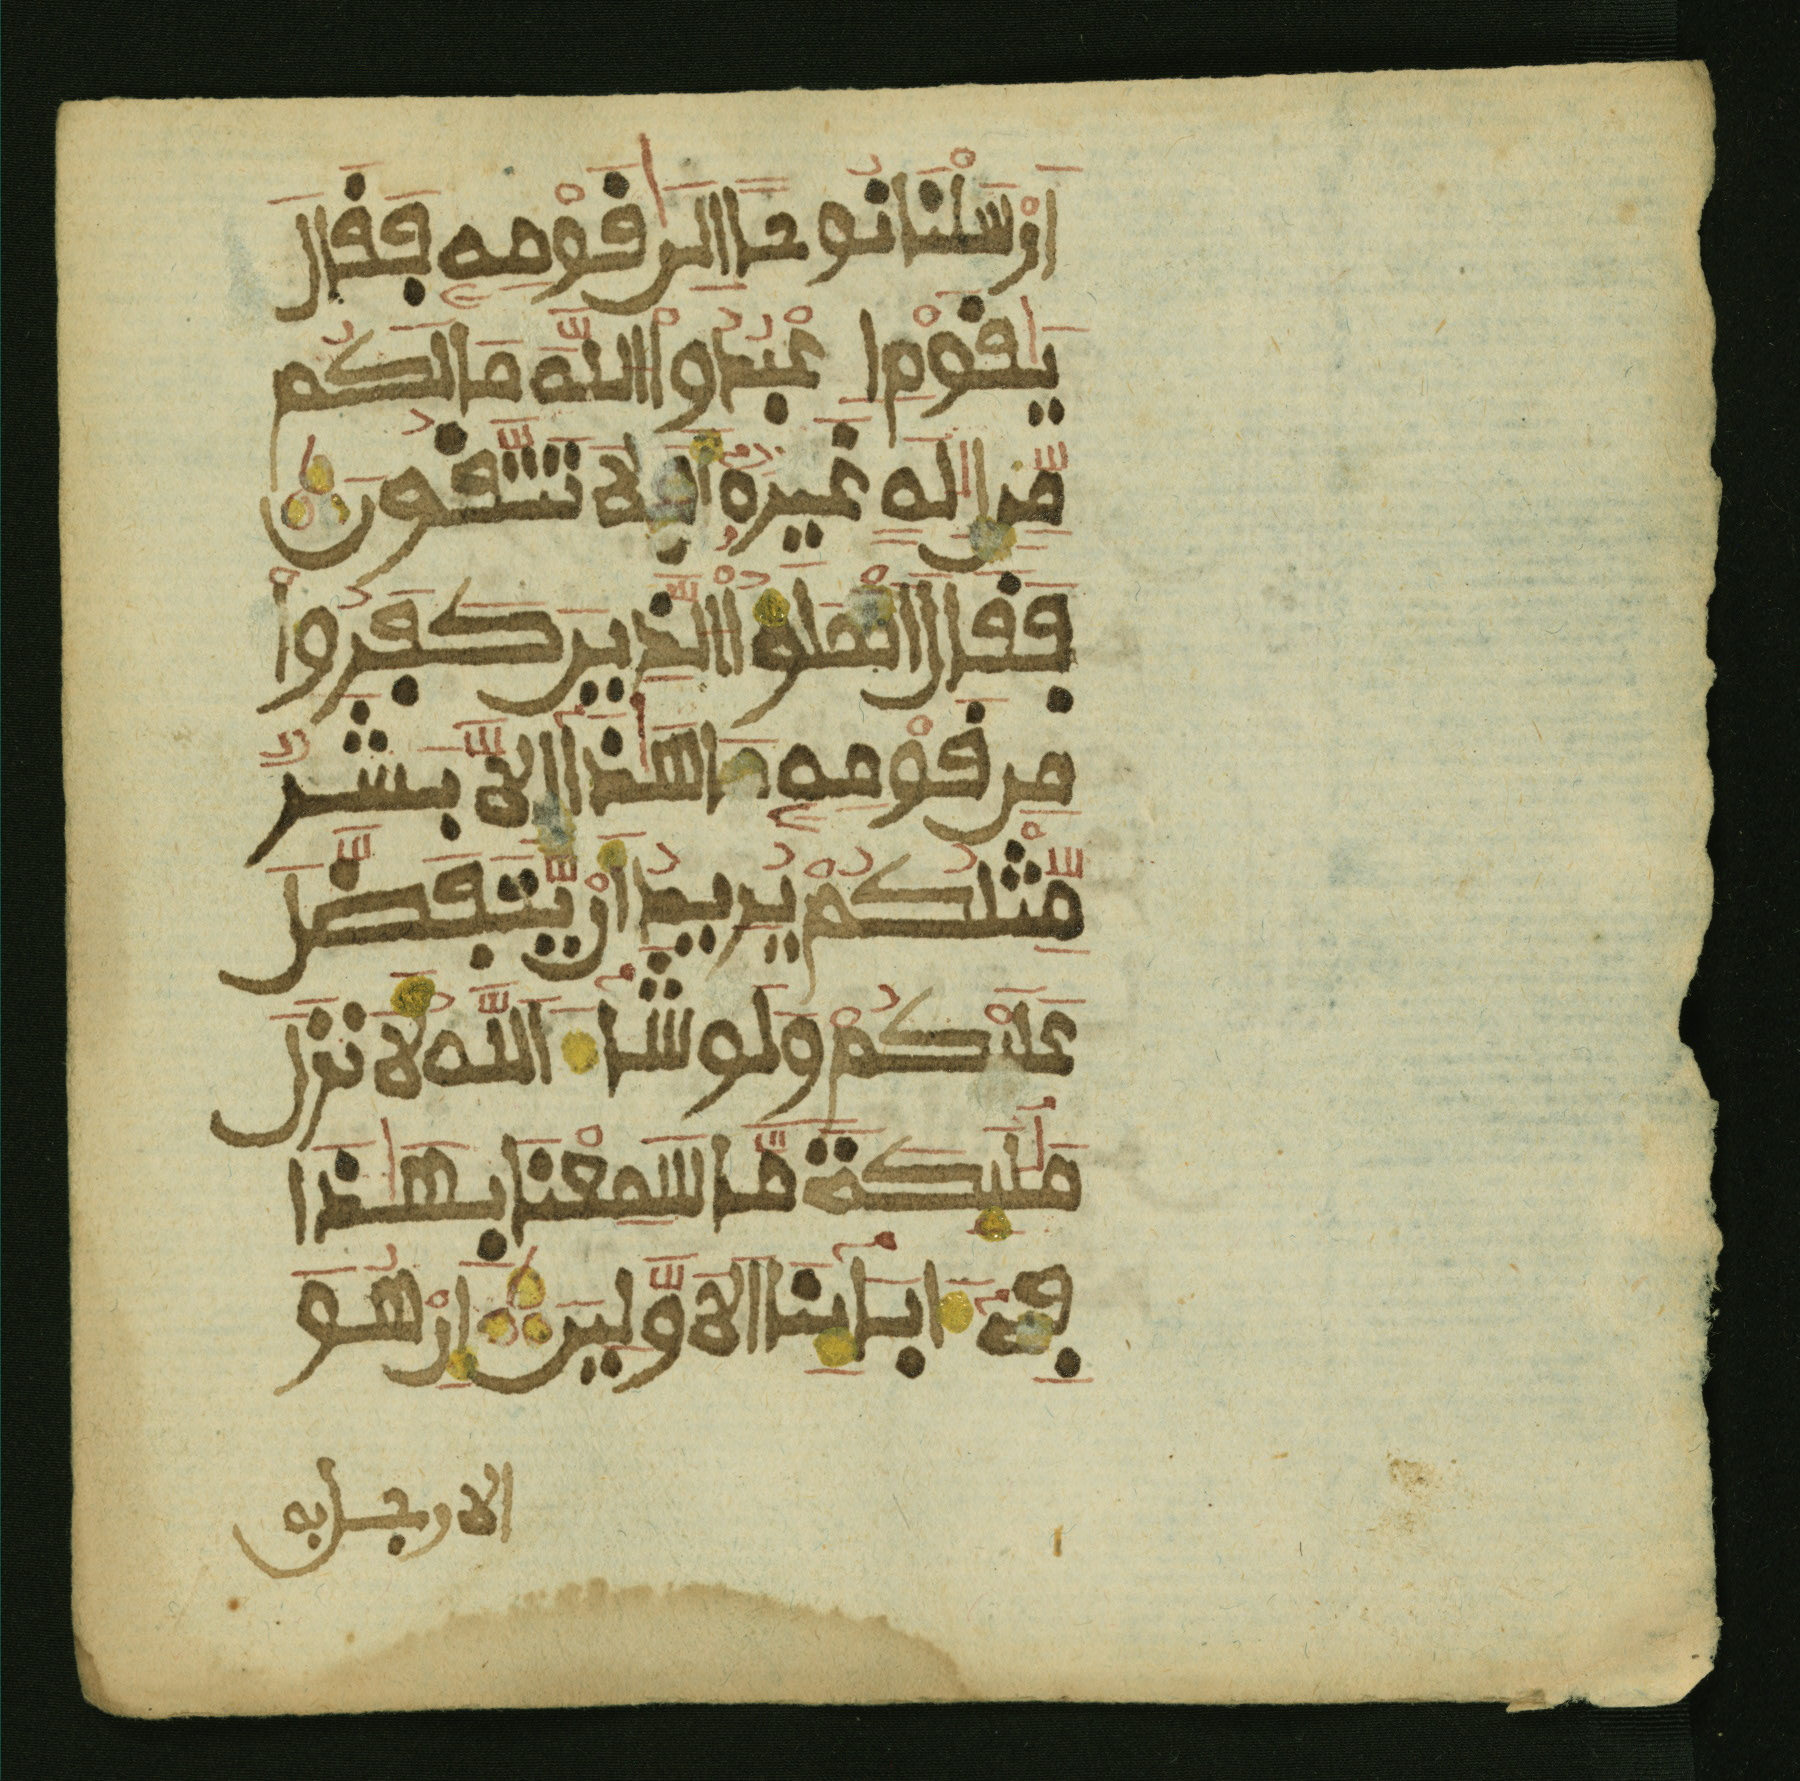 اَرْسَلْنَا نُوحًا اِلٰى فَوْمِهِۦ فَفَالَ
يَٰفَوْمِ ا عْبُدُوا۟ اللَّهَ مَا لَكُم
مِّنِ اِلَٰهٍ غَيْرُهُۥٓ أَفَلَا تَتَّفُونَ
فَفَالَ ا۬لْمَلَؤُا۟ ا۬لذِينَ كَفَرُوا۟
مِن فَوْمِهِۦ مَا هَٰذَآ إِلَّا بَشَرٌ
مِّثْلُكُمْ يُرِيدُ أَنْ يَّتَفَضَّلَ
عَلَيْكُمْ وَلَوْ شَآءَ اَللَّهُ لَأَنزَلَ
مَلَٰٓئِكَةً مَّا سَمِعْنَا بِهَٰذَا
فِىٓ ءَابَآئِنَا اَلَاوَّلِينَ إِنْ هُوَ
الا رجل به